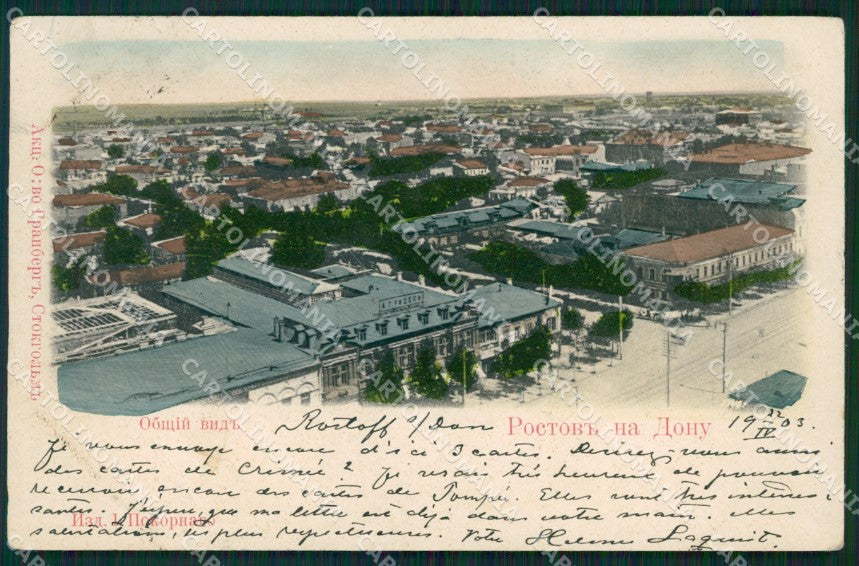 Акц: О: во Гранбергъ, Стокгольмъ
Общій видъ
Rostoff s/Don
Ростовъ на Дону
1903. 22/IV
Je vous envoye encore d'ici 3 cartes. Désirez-vous aussi
des cartes de Crimée? Je serais très heureuse de pouvoir
recevoir encore des cartes de Pompéi. Elles sont très intéres-
santes. J'espère, que ma lettre est déjà dans votre main. Mes
salutations, les plus respectueuses. Votre Helene
Изд. І. Покорнаго
CARTOLINOMANIA